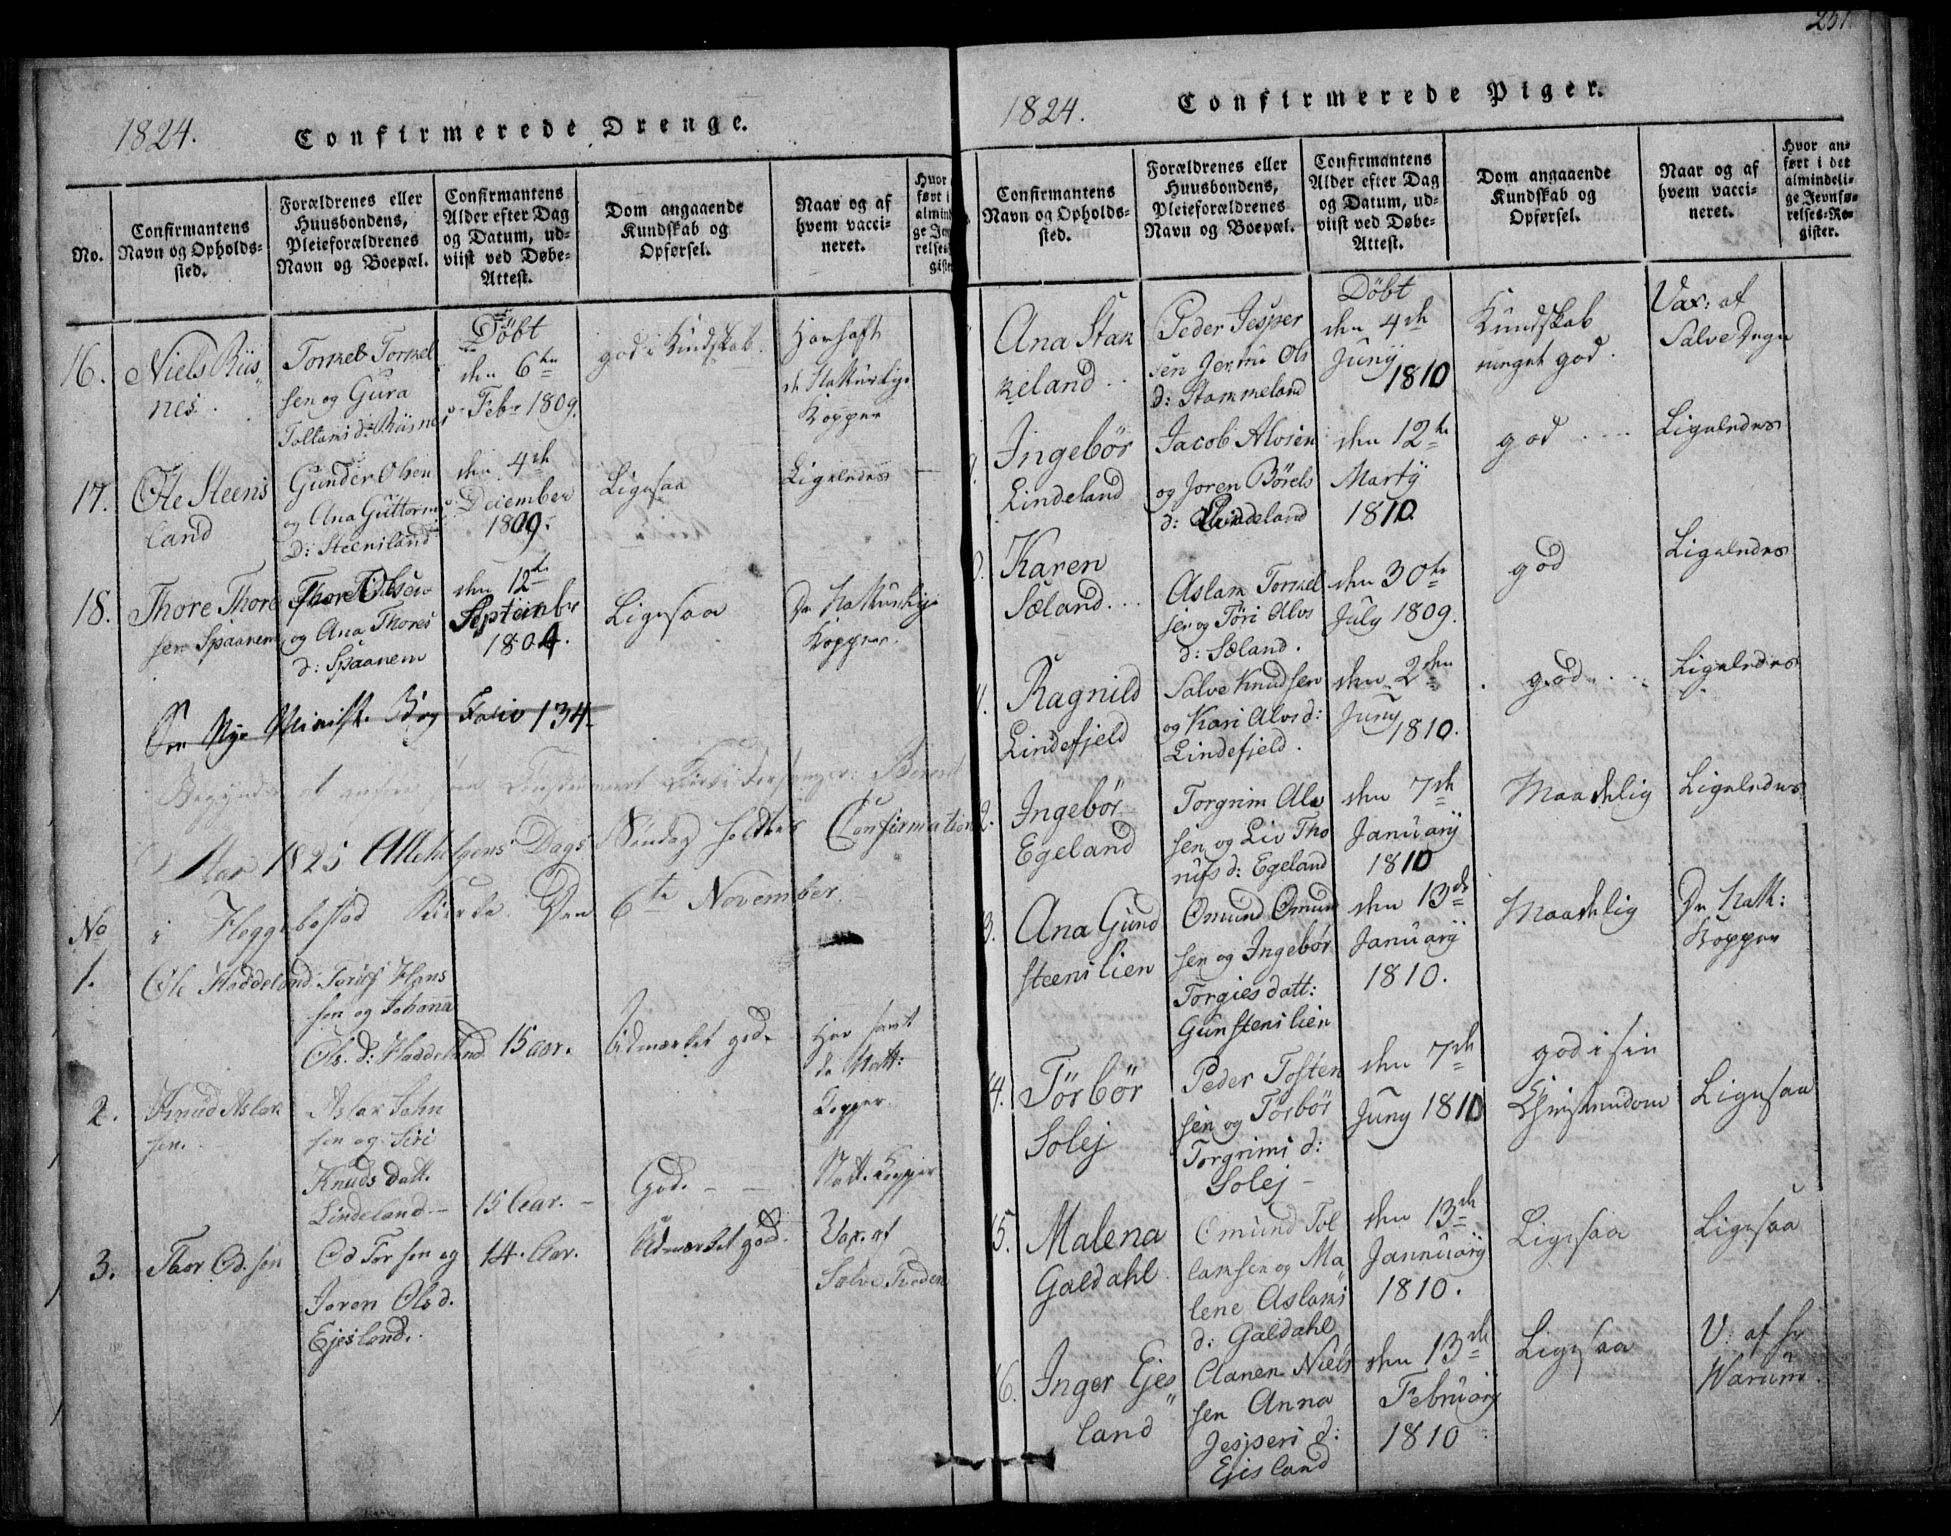 1824.
Confirmerede Drenge.
No.
Confirmantens
Navn og Opholds-
sted.
Forældrenes eller
Huusbondens,
Pleieforældrenes
Navn og Boepæl.
Confirmantens
Alder efter Dag
og Datum, ud-
viist ved Døbe-
Attest.
Dom angaaende
Kundskab og
Opførsel.
Naar og af
hvem vacci-
neret.
16.
Niels Riis„
nes.
Tormel Tormel
sen og Gura
Tollams d: Riisnes
Döbt
den 6te
Febr 1809.
god i Kundskab.
Har haft
de Naturlige
Kopper
17.
Ole Steens
land
Gunder Olsen
og Ana Guttorms
D: Steensland
den 4de
December
1809.
Ligesaa
Ligeledes
18.
Thore Thore
sen Spaanem
Thore Olsen
og Ana Thores
d: Spaanem
den 12te
September
1804.
Ligesaa
De Naturlige
Kopper.
See Nye Minist. Bog Folio 134
Aar 1825 Allehelgens Dags Søndag holdtes Confirmation
i Heggebostad Kierke Den 6te November.
No
1.
Ole Haddeland
Torkels Hans
sen og Johanna
Ols. d: Haddeland
15 aar.
Udmærket god.
Har havt
de Natt:
Kopper.
2.
Knud Aslak
sen.
Aslak John
sen og Siri
Knuds datt.
Lindeland.
15 Aar.
God.
Natt. Kopper
3.
Thor Od. sen
Od Tor sen og
Joren Ols d.
Ejesland.
14. Aar.
Udmærket god.
Vax. af
Salve Tveden
251.
1824.
Confirmerede Piger.
Confirmantens
Navn og Opholds-
sted.
Forældrenes eller
Huusbondens,
Pleieforældrenes
Navn og Boepæl.
Confirmantens
Alder efter Dag
og Datum, ud-
viist ved Døbe-
Attest.
Dom angaaende
Kundskab og
Opførsel.
Naar og af
hvem vacci-
neret.
Hvor an-
ført i det
almindeli-
ge Jevnfø-
relses-Re-
gister.
Ana Stak
keland
Peder Jesper
sen Jermi Ols
d: Stammeland
Döbt
den 4de
Junij
1810
Kundskab
meget god.
Vax: af
Salve Degn
Ingebör
Lindeland
Jacob Alvsen
og Joren Börels
d: Lindeland
den 12te
Martij
1810.
god
Ligeledes
Karen
Sæland.
Aslam Tormel
sen og Töri Alvs
d: Sæland.
den 30te
July 1809.
god
Ligeledes
Ragnild
Lindefjeld
Salve Knudsen
og Kari Alvs d:
Lindefjeld.
den 2den
Juny
1810.
god
Ligeledes
2.
Ingebör
Egeland
Torgrim Alv
sen og Liv Tho
rufs d: Egeland
den 7de
Januarij
1810
Maadelig
Ligeledes
3.
Ana Gund
steenslien
Omund Omund
sen og Ingebör
Torgies datt:
Gunstenslien
den 13de
Januarij
1810.
Maadelig
De Natt:
Kopper
4.
Törbör
Solej
Peder Tosten
sen og Törbör
Torgrims d:
Solej
den 7de
Juny 1810
god i sin
Christendom
Ligesaa
15.
Malena
Galdahl
Omund Tol
lamsen og Ma
lene Aslaks
d: Galdahl
den 13de
Jannuarij
1810.
Ligesaa
Ligesaa
16.
Inger Ejes„
land
Clanen Niels
sen Anna
Jespers d:
Ejesland
den 13de
Februarij
1810
Ligesaa
V: af hr
Warum.